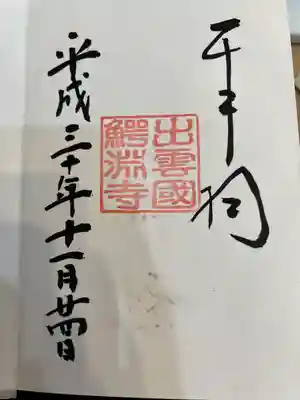 出雲國
鰐淵寺
平成三十年十一月廿四日